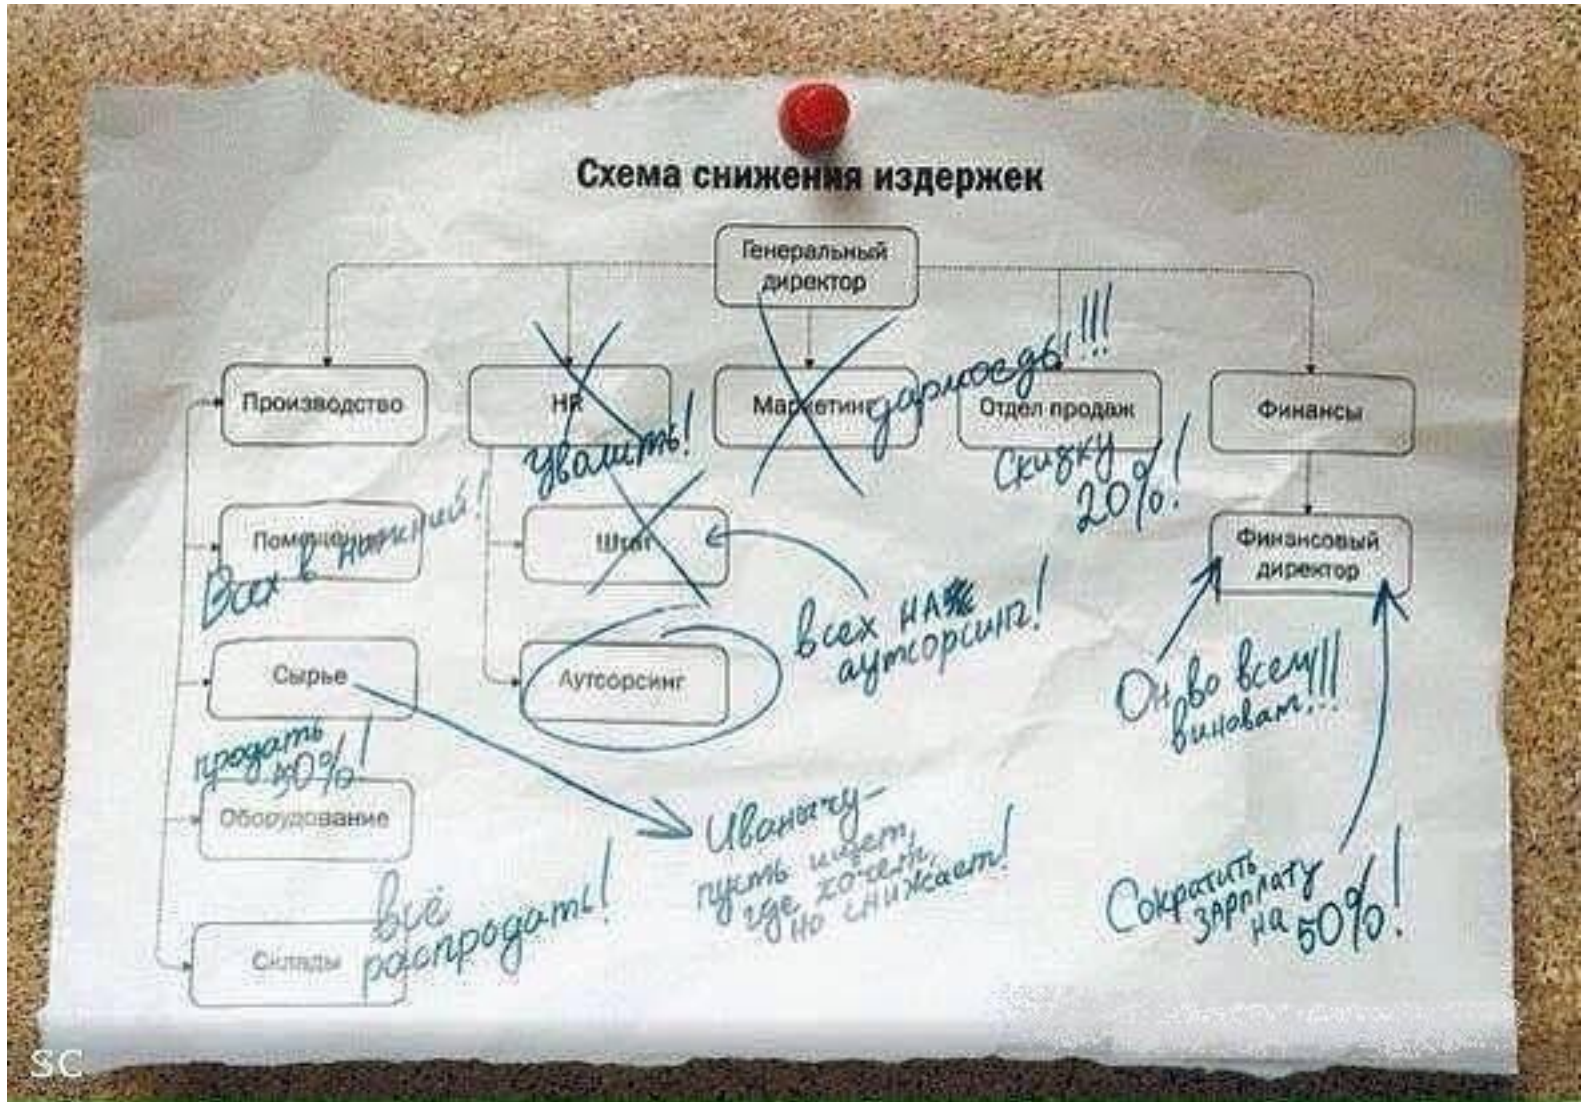 Схема снижения издержек
Генеральный
директор
Производство
HR
Маркетинг
Отдел продаж
Финансы
дармоеды!!!
Уволить!
Скидку
20%!
Помещения
Всех в нижний!
Штат
Финансовый
директор
всех на
аутсорсинг!
Сырье
Аутсорсинг
Он во всем
виноват...!!!
продать
50%!
Оборудование
Иванычу –
пусть ищет,
где хочет,
но снижает!
Сократить
зарплату
на 50%!
всё
распродать!
Склады
SC